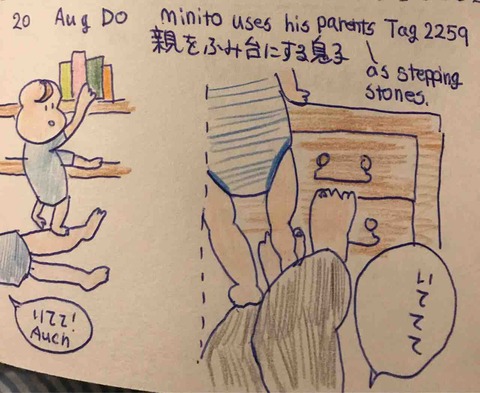 20 Aug DO minito uses his parents Tag 2259
親をふみ台にする息子
as stepping
stones.
いててて
いてて!
Auch